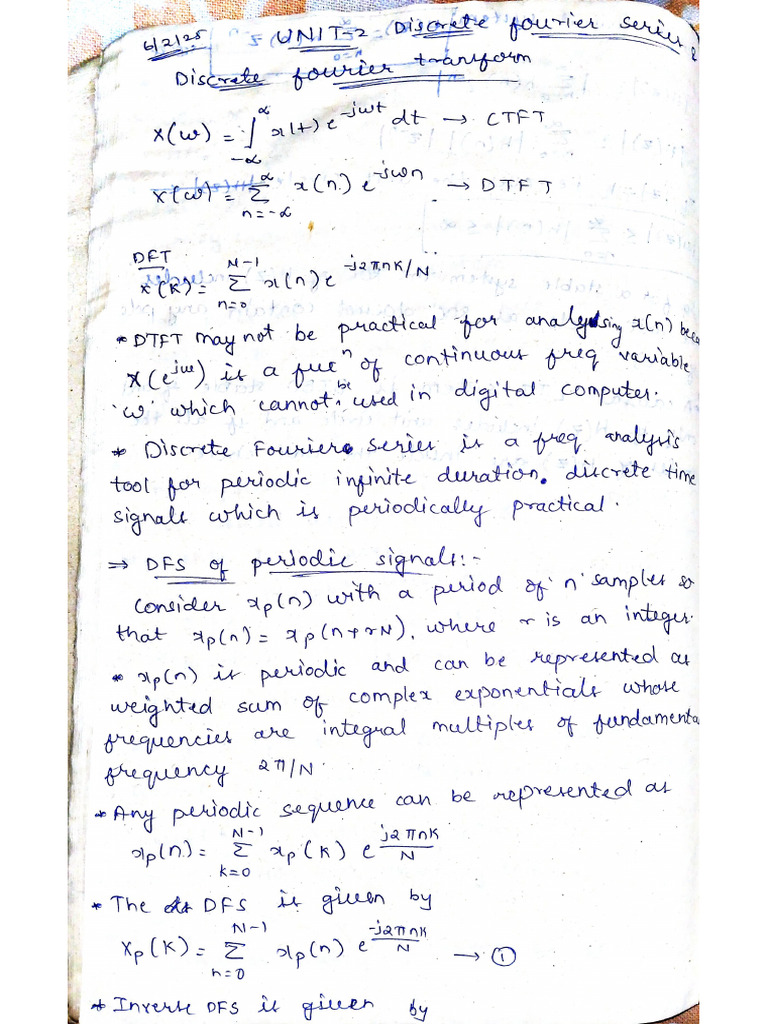 6/2/25 UNIT-2 Discrete fourier series &
Discrete fourier transform
X(ω) = ∫_{-∞}^{∞} x(t) e^{-jωt} dt → CTFT
X(ω) = Σ_{n=-∞}^{∞} x(n) e^{-jωn} → DTFT
DFT
X(K) = Σ_{n=0}^{N-1} x(n) e^{-j2πnK/N}
* DTFT may not be practical for analysing x(n) beca
X(e^{jω}) is a fuc^n of continuous freq variable
'ω' which cannot be used in digital computer.
* Discrete Fourier series is a freq analysis
tool for periodic infinite duration. discrete time
signals which is periodically practical.
⇒ DFS of periodic signals:-
Consider x_p(n) with a period of 'n' samples so
that x_p(n) = x_p(n+rN), where r is an integer.
* x_p(n) is periodic and can be represented as
weighted sum of complex exponentials whose
frequencies are integral multiples of fundamenta
frequency 2π/N.
* Any periodic sequence can be represented as
x_p(n) = Σ_{k=0}^{N-1} x_p(k) e^{j2πnk/N}
* The DFS is given by
X_p(K) = Σ_{n=0}^{N-1} x_p(n) e^{-j2πnk/N} → ①
* Inverse DFS is given by